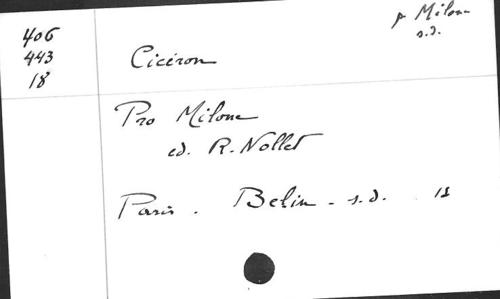 406
443
18
p Milone
s.d.
Cicéron
Pro Milone
ed. R. Nollet
Paris. Belin - s.d.